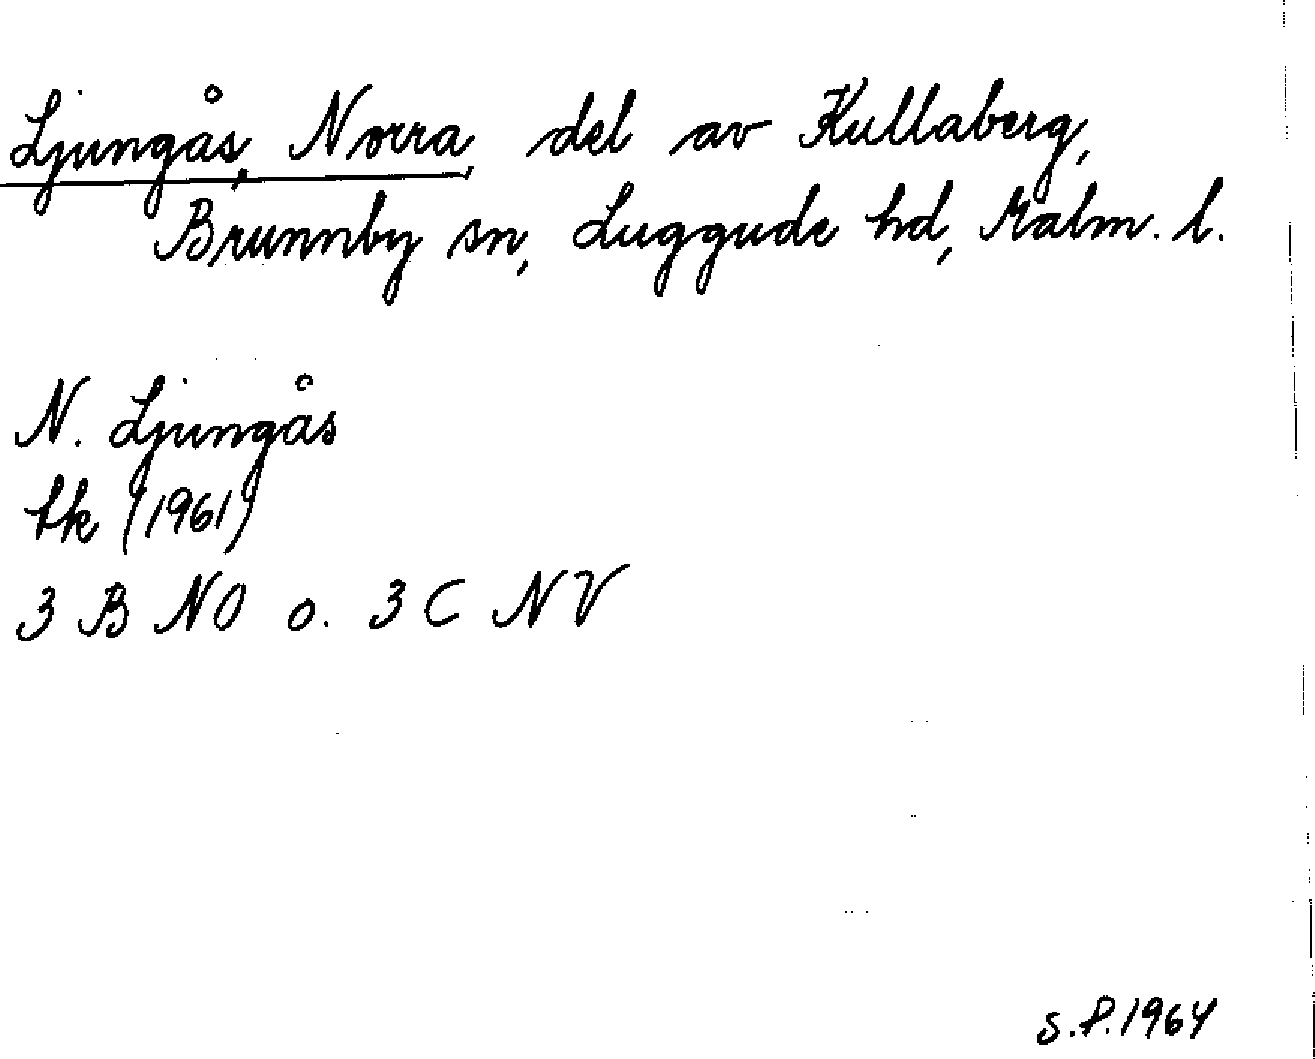 Ljungås, Norra, del av Kullaberg,
Brunnby sn, Luggude hd, Malm. l.
N. Ljungås
tk (1961)
3 B NO o. 3 C NV
S.P. 1964